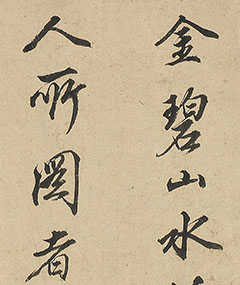 金碧山水
人所図者